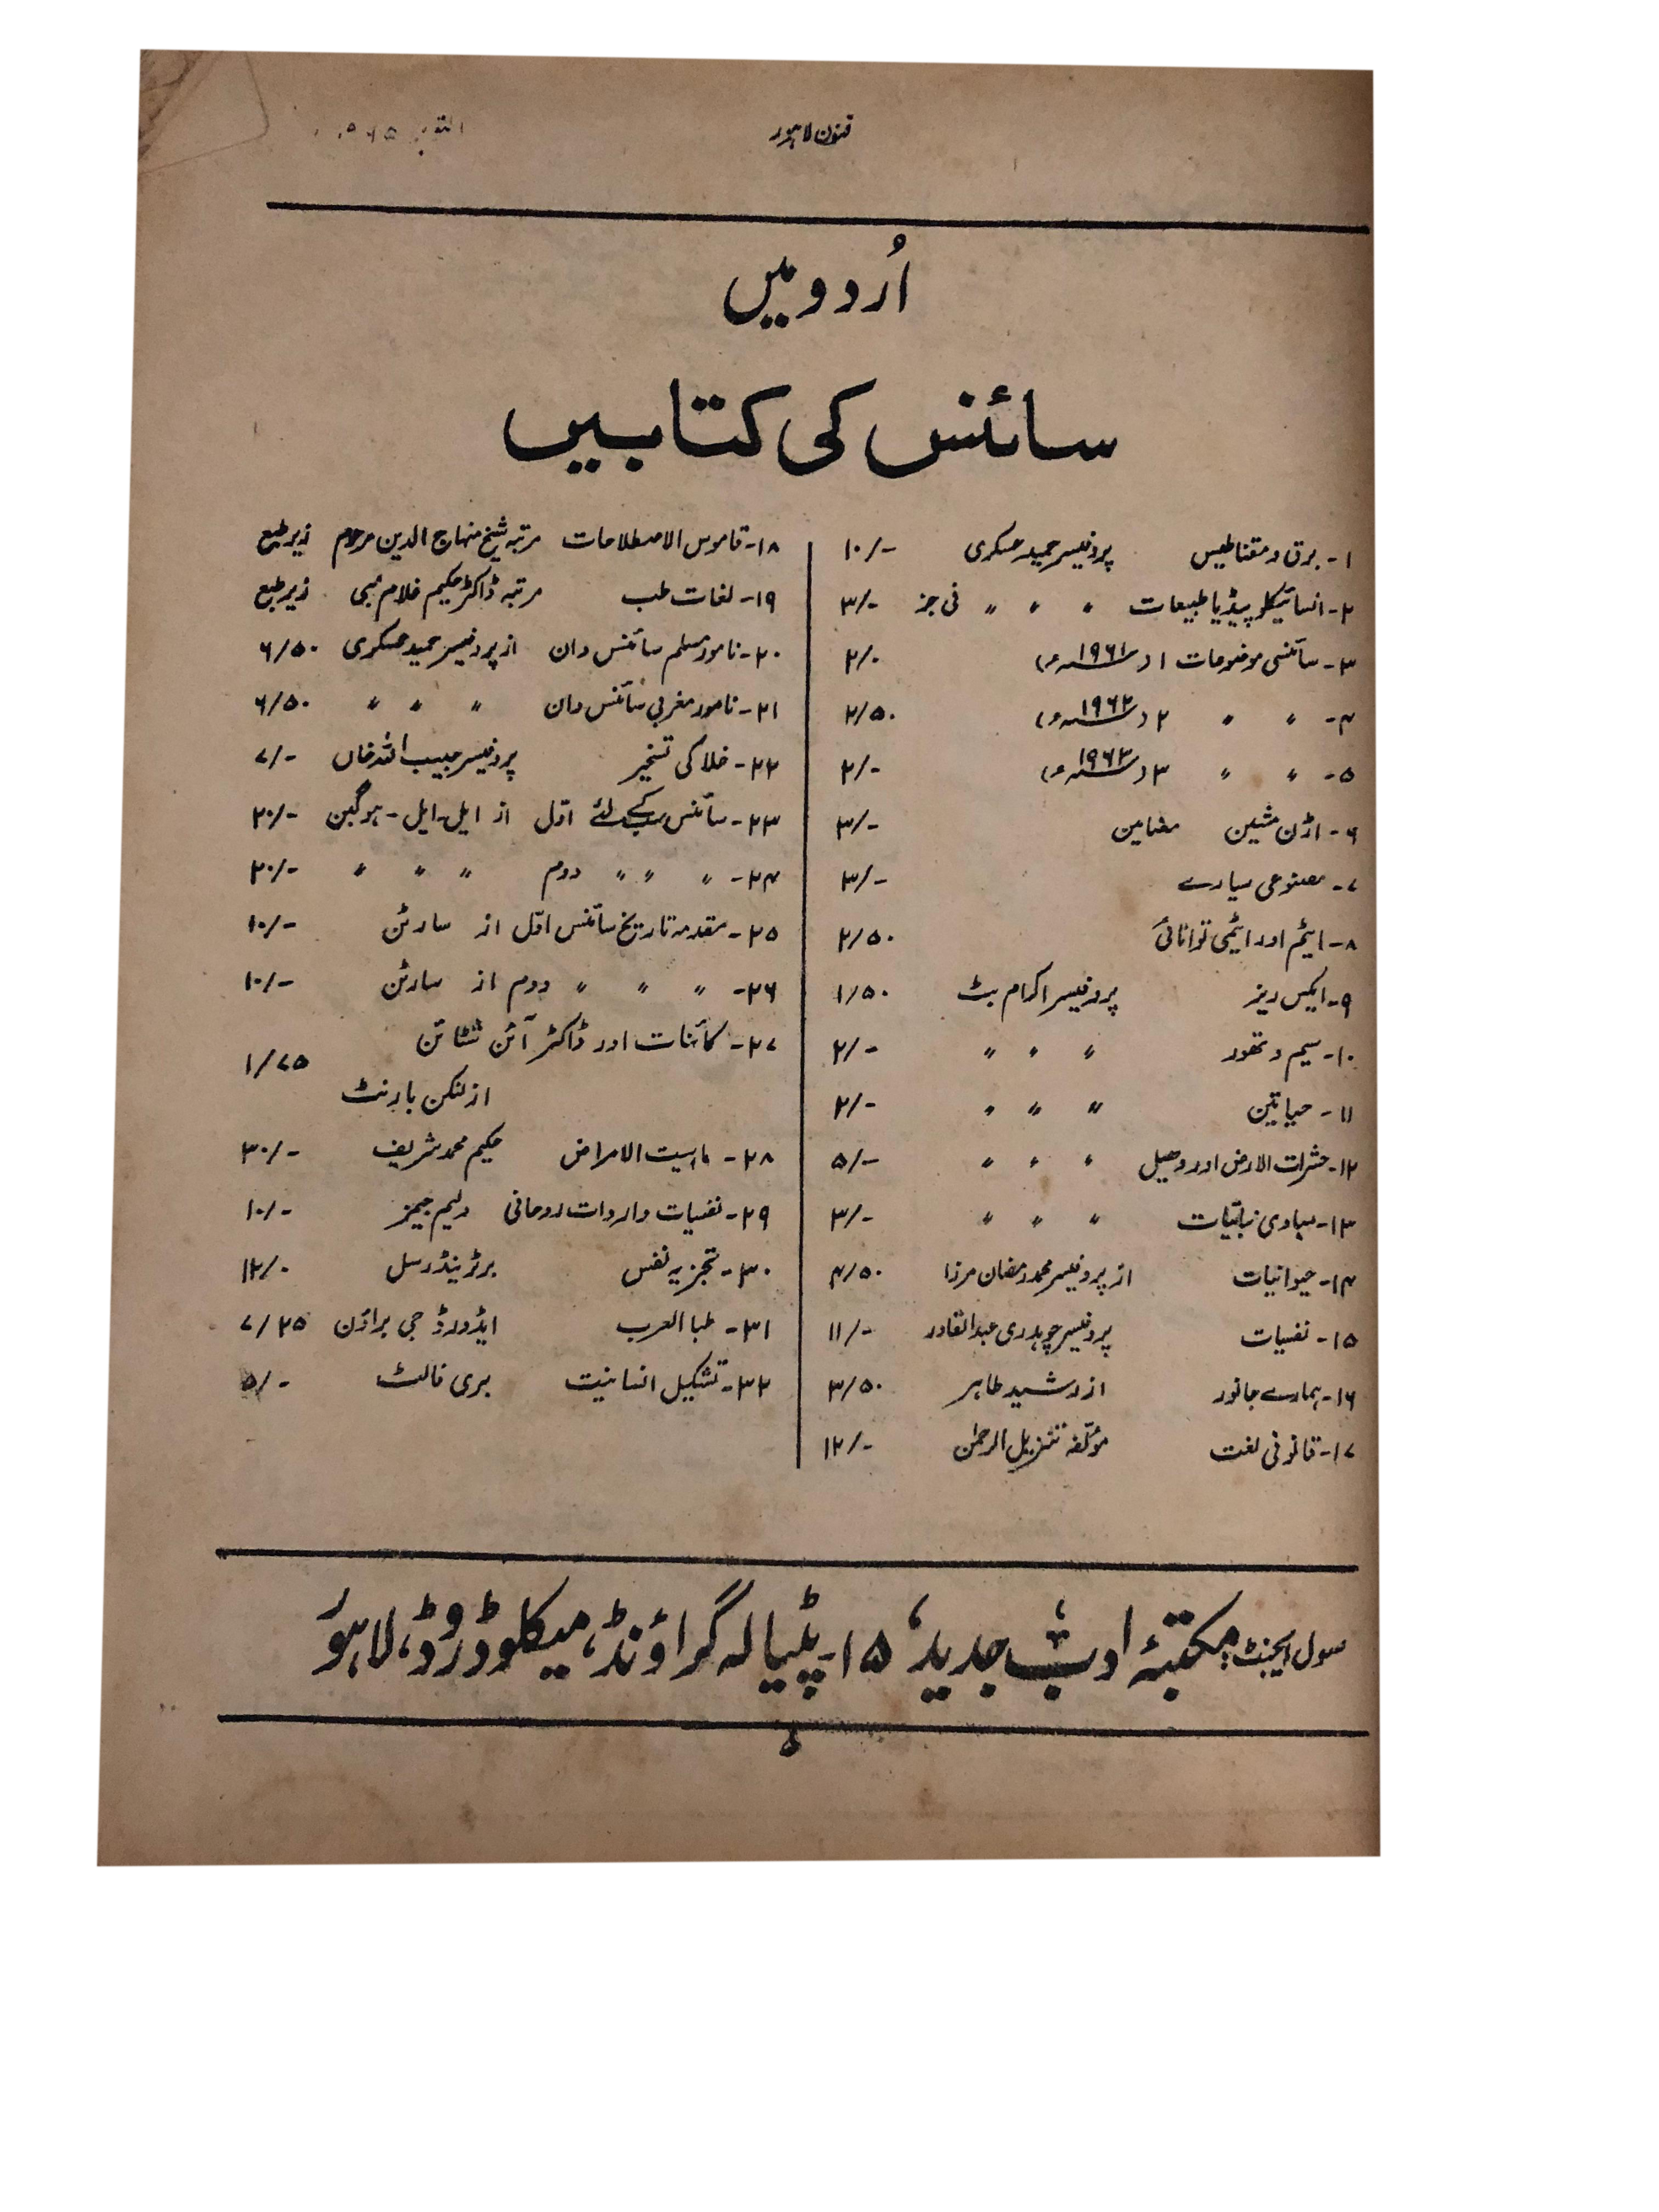 فنون لاہور
اُردو میں
سائنس کی کتابیں
۱- برق و مقناطیس پروفیسر حمید عسکری ۱۰/-
۲- انسائیکلوپیڈیا طبیعات " " " فی جز ۳/-
۳- سائنسی موضوعات ۱ (۱۹۶۱ء) ۲/۰
۴- " " ۲ (۱۹۶۲ء) ۲/۵۰
۵- " " ۳ (۱۹۶۳ء) ۲/-
۶- اڑن مشین مضامین ۳/-
۷- مصنوعی سیارے ۳/-
۸- ایٹم اور ایٹمی توانائی ۲/۵۰
۹- ایکس ریز پروفیسر اکرام بٹ ۱/۵۰
۱۰- سیم و تھور " " " ۲/-
۱۱- حیاتین " " " ۲/-
۱۲- حشرات الارض اور وھیل " " " ۵/-
۱۳- مبادی نباتیات " " " ۳/-
۱۴- حیوانیات از پروفیسر محمد رمضان مرزا ۴/۵۰
۱۵- نفسیات پروفیسر چوہدری عبدالقادر ۱۱/-
۱۶- ہمارے جانور از رشید طاہر ۳/۵۰
۱۷- قانونی لغت مؤلفہ تنزیل الرحمٰن ۱۲/-
۱۸- قاموس الاصطلاحات مرتبہ شیخ منہاج الدین مرحوم زیر طبع
۱۹- لغات طب مرتبہ ڈاکٹر حکیم غلام نبی زیر طبع
۲۰- نامور مسلم سائنس دان از پروفیسر حمید عسکری ۶/۵۰
۲۱- نامور مغربی سائنس دان " " " ۶/۵۰
۲۲- خلا کی تسخیر پروفیسر حبیب اللہ خاں ۷/-
۲۳- سائنس سب کے لئے اوّل از ایل-ایل-ہوگبن ۲۰/-
۲۴- " " " دوم " " " ۲۰/-
۲۵- مقدمہ تاریخ سائنس اوّل از سارٹن ۱۰/-
۲۶- " " " دوم از سارٹن ۱۰/-
۲۷- کائنات اور ڈاکٹر آئن شٹائن ۱/۷۵
از لنکن بارنٹ
۲۸- ماہیت الامراض حکیم محمد شریف ۳۰/-
۲۹- نفسیات واردات روحانی ولیم جیمز ۱۰/-
۳۰- تجزیہ نفس برٹرینڈ رسل ۱۲/۰
۳۱- طب العرب ایڈورڈ جی براؤن ۷/۲۵
۳۲- تشکیل انسانیت بری فالٹ ۵/-
سول ایجنٹ: مکتبۂ ادبِ جدید، ۱۵-پٹیالہ گراؤنڈ، میکلوڈ روڈ، لاہور